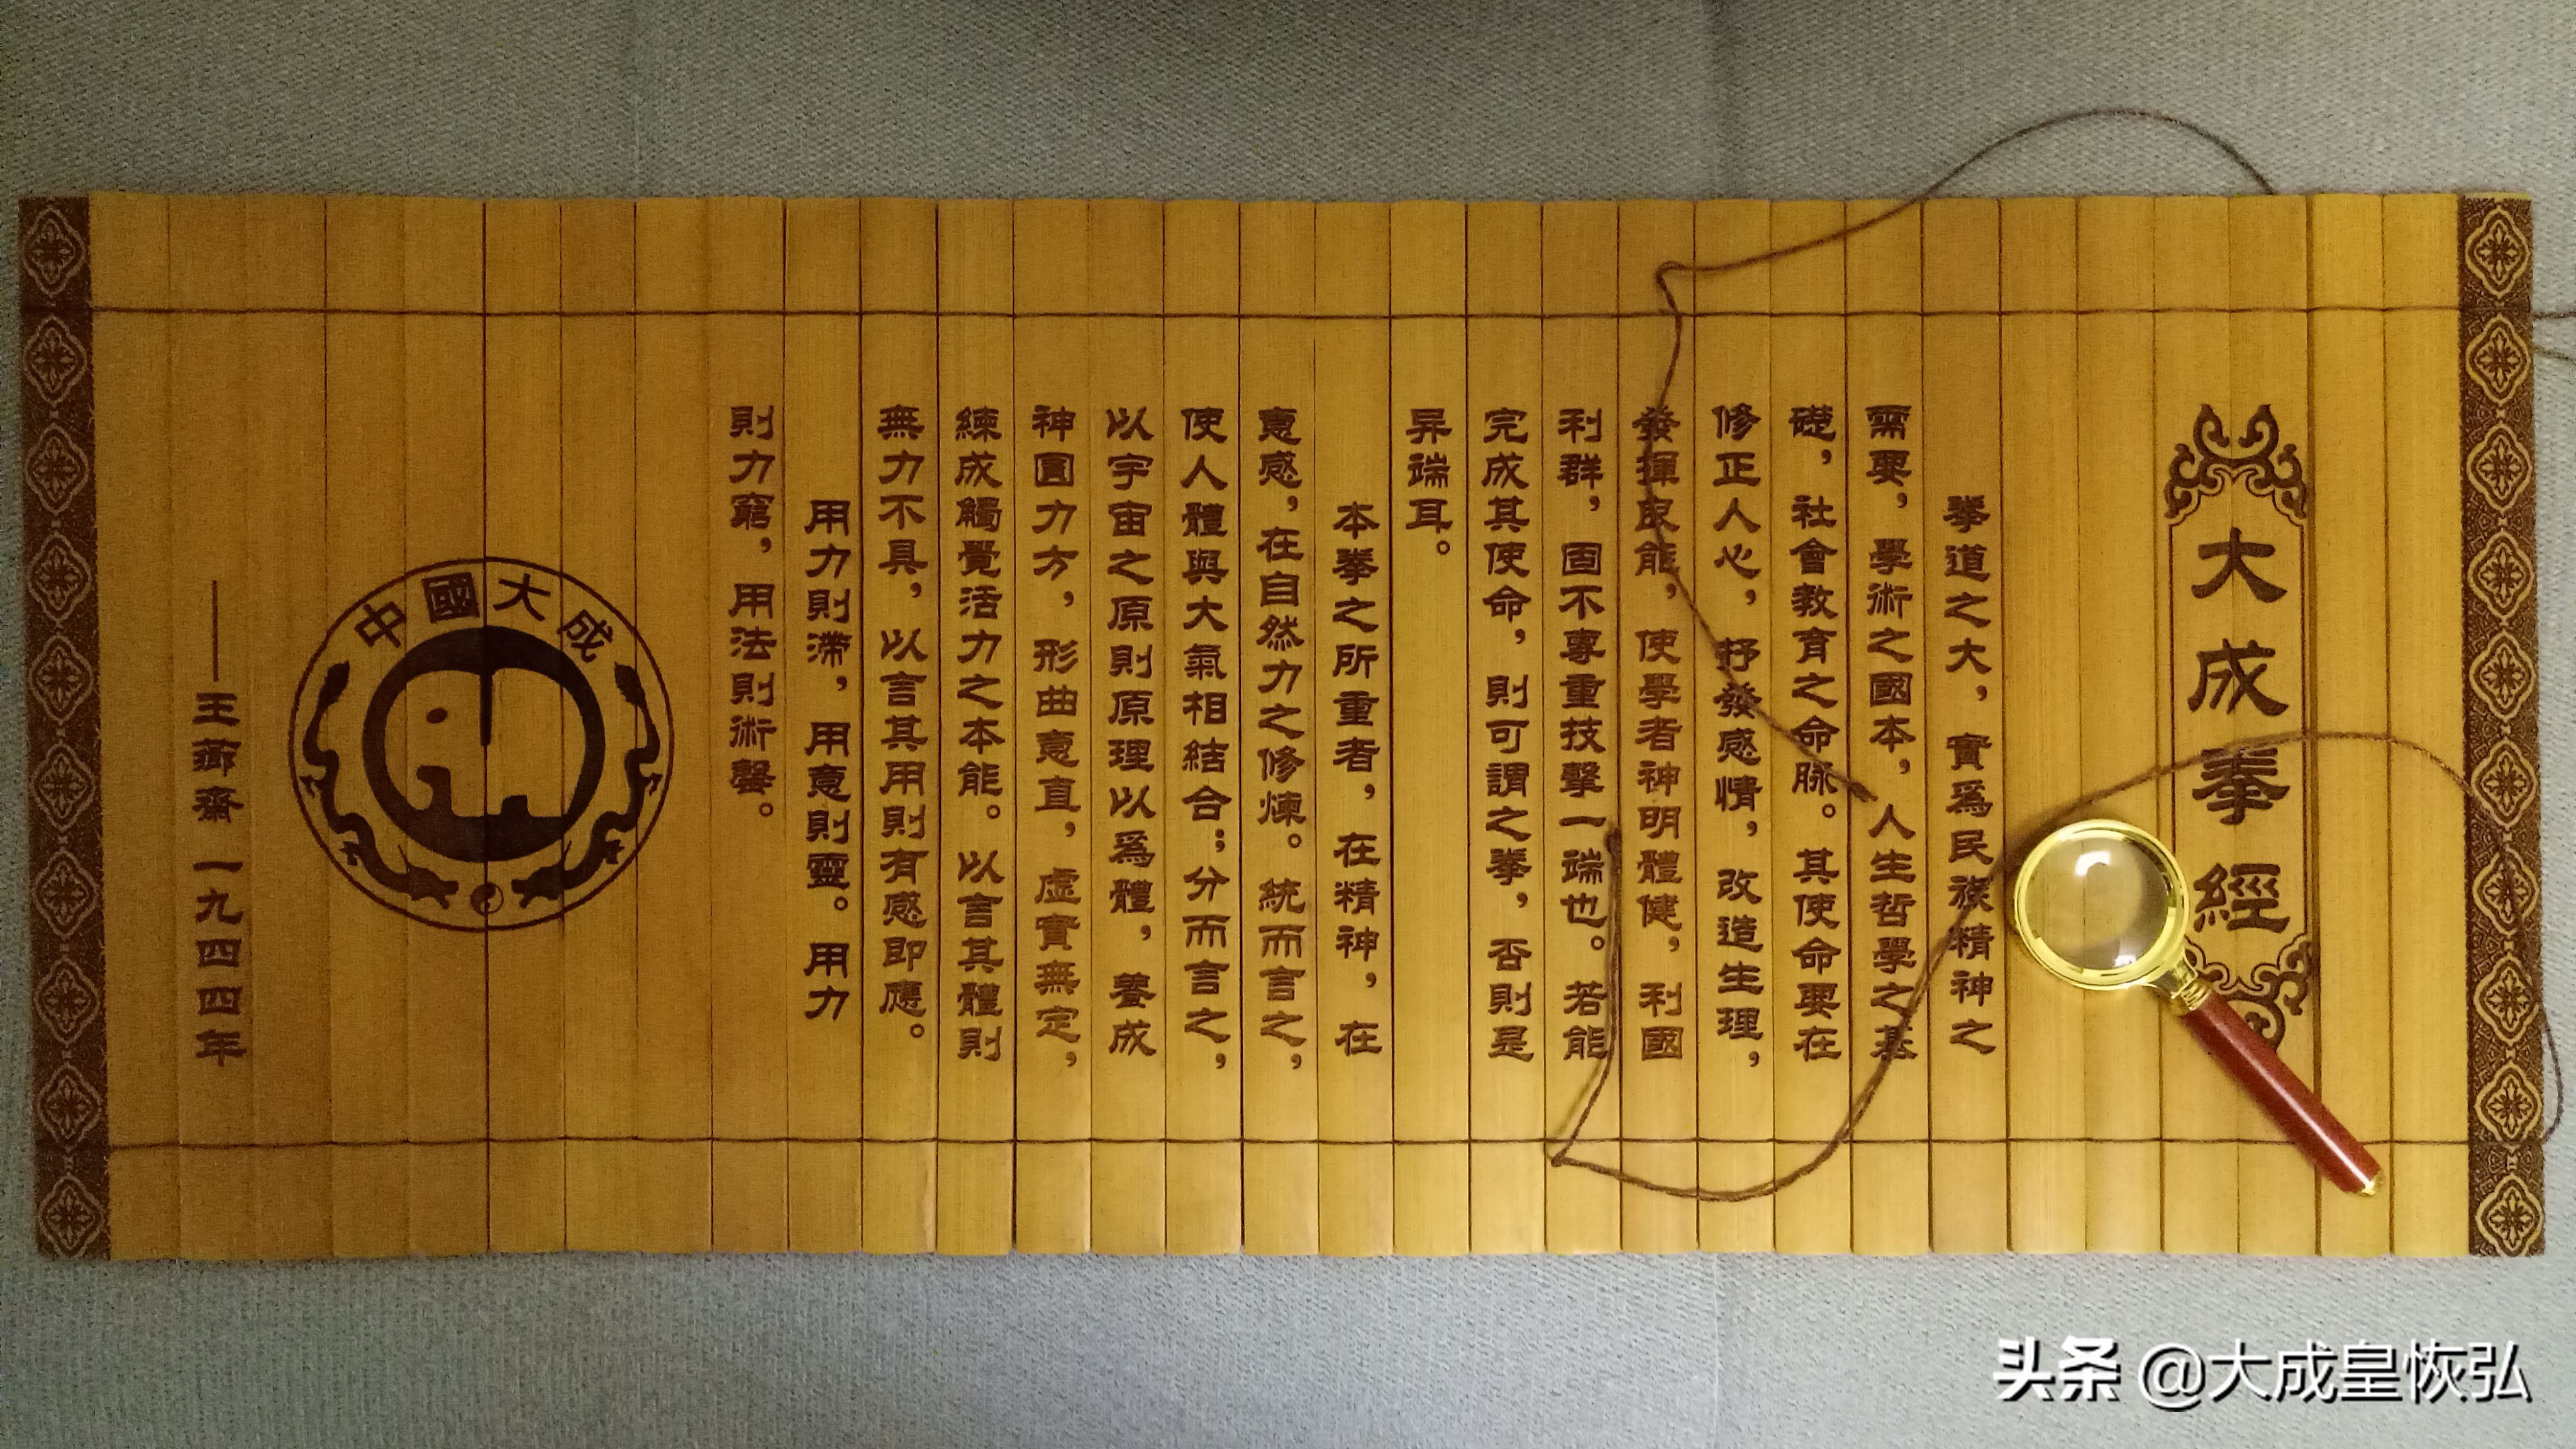 大成拳經
拳道之大，實爲民族精神之
需要，學術之國本，人生哲學之基
礎，社會教育之命脉。其使命要在
修正人心，抒發感情，改造生理，
發揮良能，使學者神明體健，利國
利群，固不專重技擊一端也。若能
完成其使命，則可謂之拳，否則是
异端耳。
本拳之所重者，在精神，在
意感，在自然力之修煉。統而言之，
使人體與大氣相結合；分而言之，
以宇宙之原則原理以爲體，養成
神圓力方，形曲意直，虛實無定，
練成觸覺活力之本能。以言其體則
無力不具，以言其用則有感即應。
用力則滯，用意則靈。用力
則力窮，用法則術罄。
中國大成
——王薌齋 一九四四年
头条 @大成皇恢弘